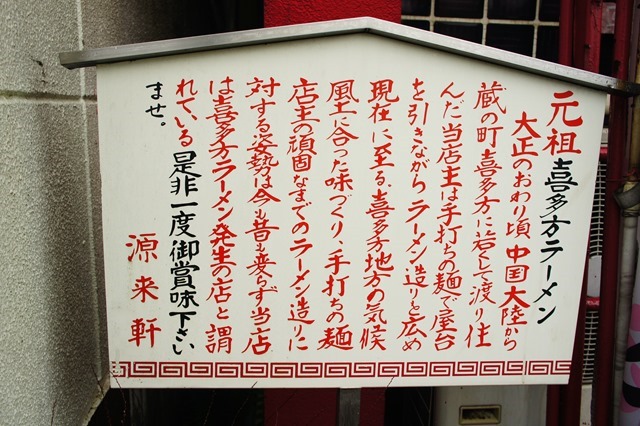 元祖 喜多方ラーメン
大正のおわり頃 中国大陸から
蔵の町喜多方に若くして渡り住
んだ当店主は手打ちの麺で屋台
を引きながらラーメン造りを広め
現在に至る、喜多方地方の気候
風土に合った味づくり、手打ちの麺
店主の頑固なまでのラーメン造りに
対する姿勢は今も昔も変らず当店
は喜多方ラーメン発生の店と謂
れている 是非一度御賞味下さい
ませ。
源来軒